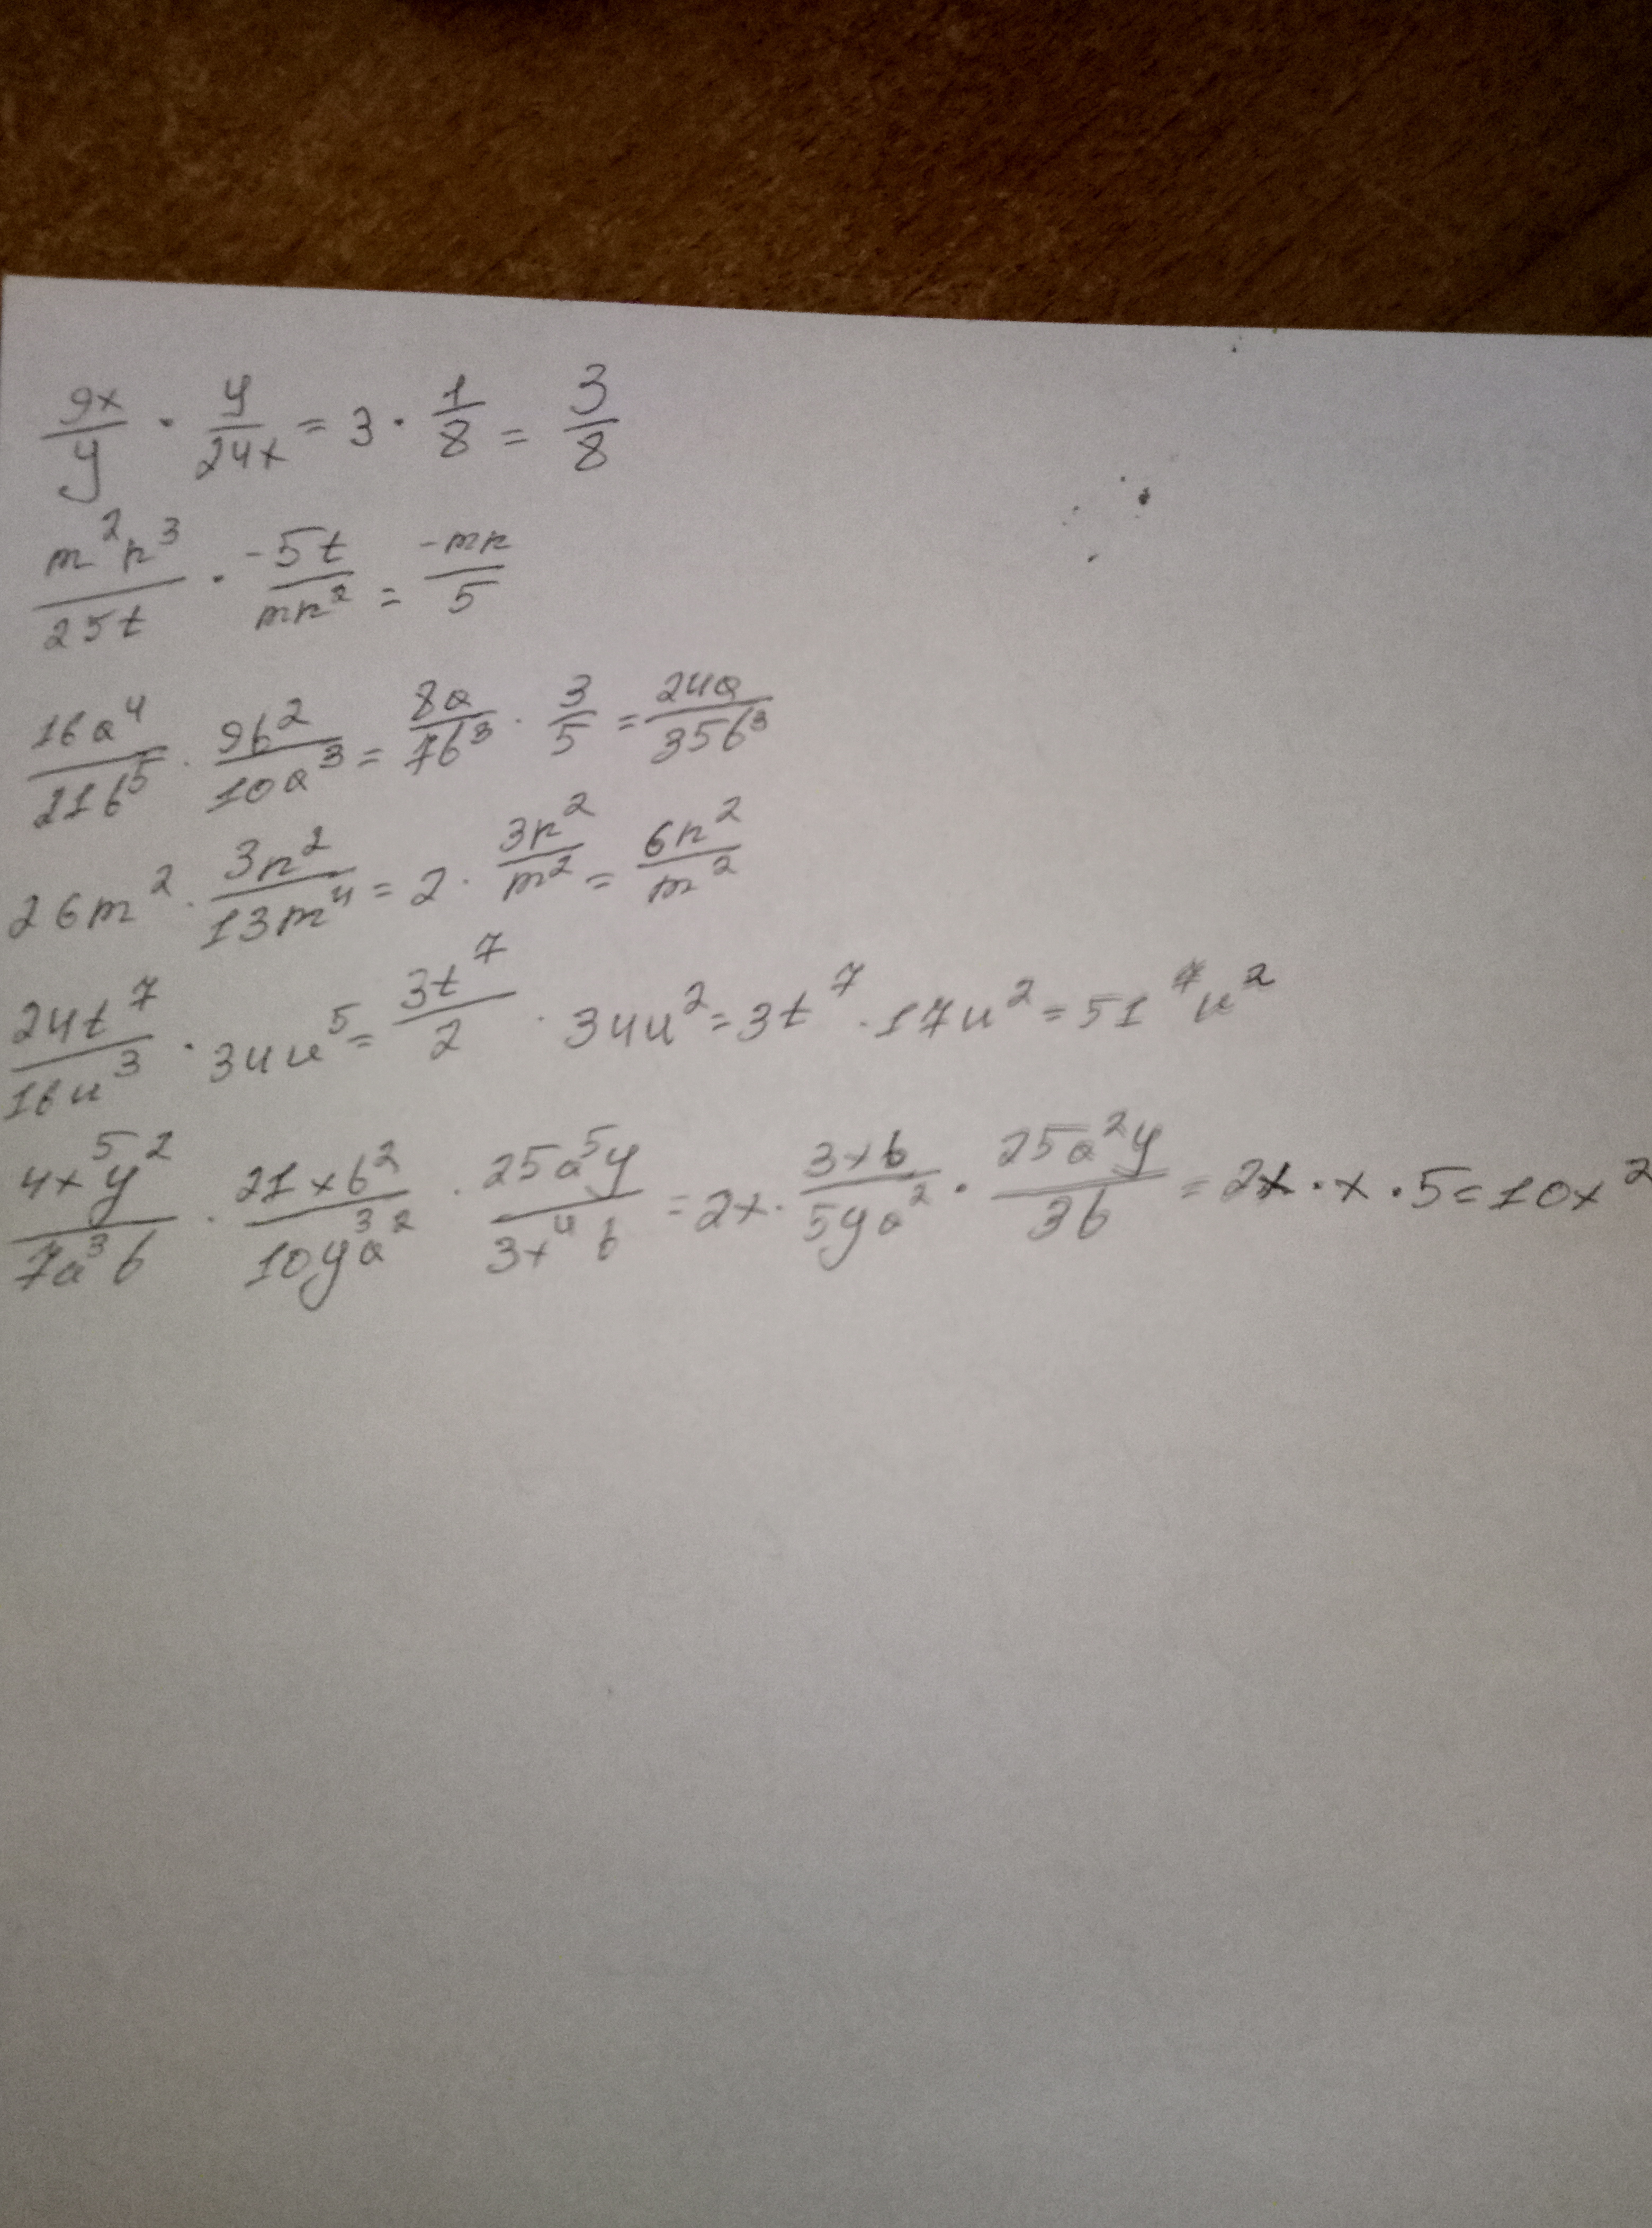 9x/y · y/24x = 3 · 1/8 = 3/8
m²n³/25t · -5t/mn² = -mn/5
16a⁴/21b⁵ · 9b²/10a³ = 8a/7b³ · 3/5 = 24a/35b³
26m² · 3n²/13m⁴ = 2 · 3n²/m² = 6n²/m²
24t⁷/16u³ · 34u⁵ = 3t⁷/2 · 34u² = 3t⁷ · 17u² = 51⁷u²
4x⁵y²/7a³b · 21xb²/10y³a² · 25a⁵y/3x⁴b = 2x · 3xb/5ya² · 25a²y/3b = 2x · x · 5 = 10x²